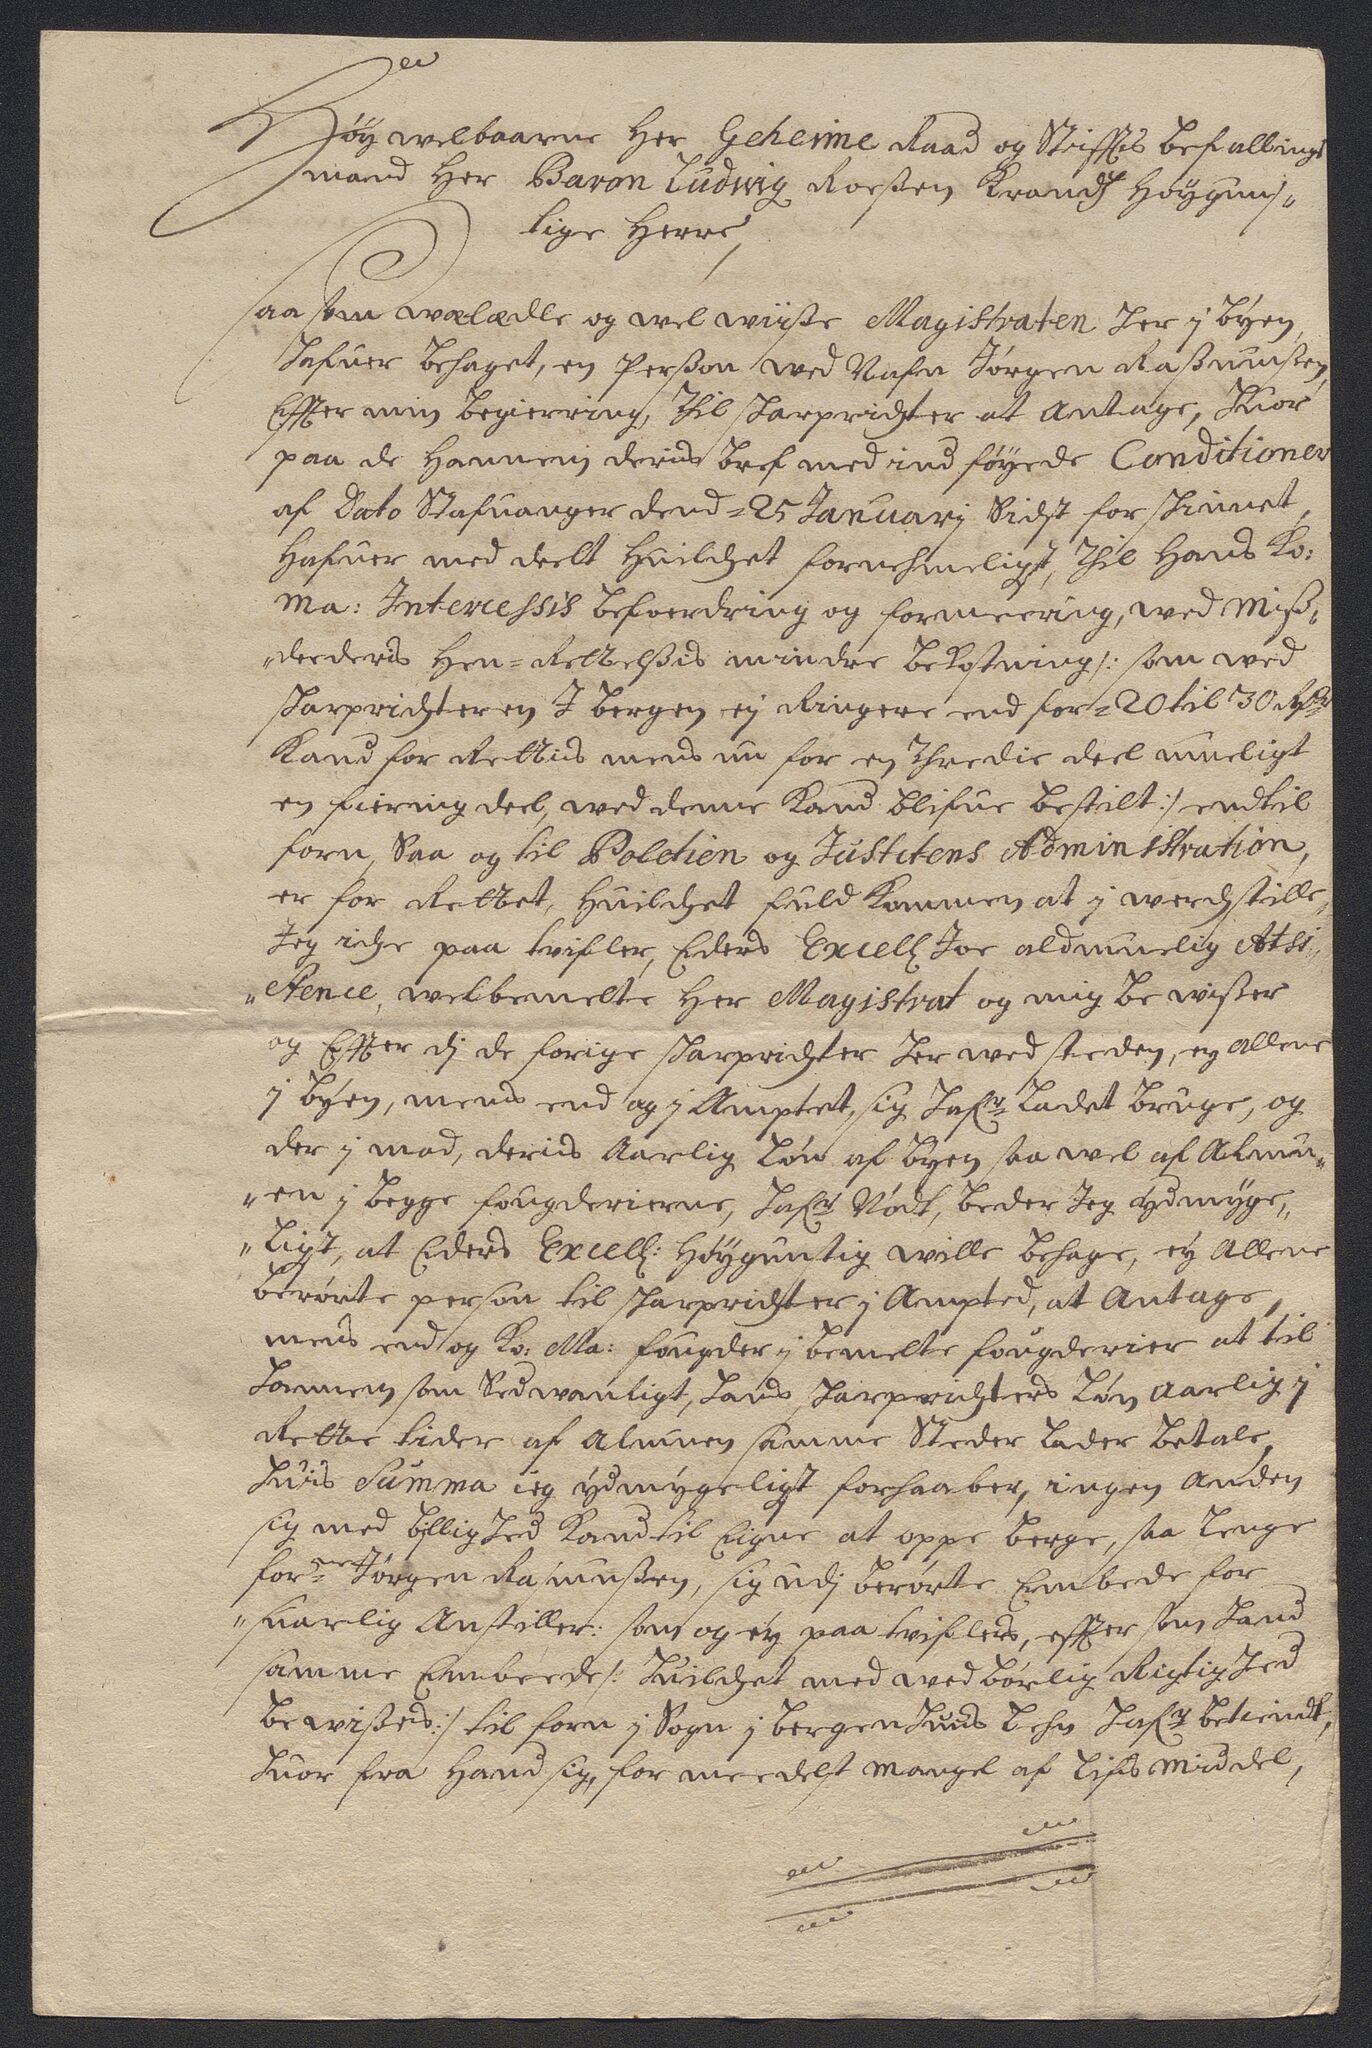 Høywelbaarne Her Geheime Raad og Stiffts befallings
mand Her Baron Ludwig Roeßen Krandz Høygunst„
lige Herre,
Saa som wælædle og wel wiiße Magistraten her j byen,
hafuer behaget, en Perßon wed Nafn Jørgen Raßmußen,
Effter min begierring, till skarpricHter at Antage, huor
paa de Hannem deris bref med ind føyede Conditioner
af Dato Stafuanger dend = 25 Januarj Sidst forskinnet,
Hafuer med deelt huilchet fornehmeligst, till Hans Ko:
Ma: Interessis befoerdring og formeering, wed Miß„
„deederis Hen=Rettelßis mindre bekostning /: som wed
skarprichteren I bergen ej Ringere end for = 20 til 30 Rdr
Kand for Rettis mens nu for en thredie deel mueligt
en fiering deel, wed denne Kand blifue bestilt :/ end til
forn, Saa og til Poletien og Justitens Administration,
er for Rettet, huilchet fuldkommen at j werchstille,
Jeg iche paa tvifler, Eders Excell: Joe aldmuelig Assi„
„stence, welbemelte Her Magistrat og mig bewißer
og Effter dj de forige skarprichter her wed steden, ey allene
j byen, mens end og j Amptet, sig hafr ladet bruge, og
der j mod, deris Aarlig løn af byen saa wel af Almu„
„en j begge fougderierne, hafr Nødt, beder Jeg ydmyge„
„ligt, at Eders Excell: Høygunstig wille behage, ey Allene
berørte person til skarprichter j Ampted, at Antage,
mens end og Ko: Ma: fougder j bemelte fougderier at til
hannem som Sedwanligt, hans skarprichters løn aarlig j
Rette tider af Almuen samme Steder lader betale,
huis Summa ieg ydmygeligt forhaaber, ingen Anden
sig med billighed Kand til Eigne at oppe berge, saa lenge
forne Jørgen Raßmußen, sig udj berørte Embede for
„suarlig Anstiller: som og ey paa tvifles, effter som hand
samme Embeede /: huilchet med wedbørlig Rigtighed
bewißes :/ til forn j Sogn j bergenhuus Lehn hafr betiendt,
huor fra Hand sig, formeedelst mangel af lifs Middel,